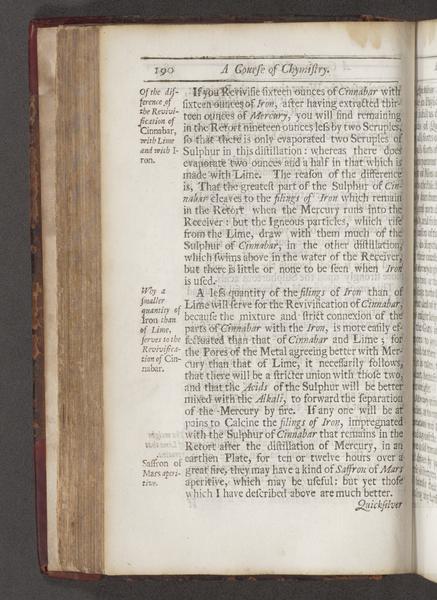 190 A Course of Chymistry.
Of the dif-
ference of
the Revivi-
fication of
Cinnabar,
with Lime
and with I-
ron.
If you Revivifie sixteen ounces of Cinnabar with
sixteen ounces of Iron, after having extracted thir-
teen ounces of Mercury, you will find remaining
in the Retort nineteen ounces less by two Scruples,
so that there is only evaporated two Scruples of
Sulphur in this distillation: whereas there does
evaporate two ounces and a half in that which is
made with Lime. The reason of the difference
is, That the greatest part of the Sulphur of Cin-
nabar cleaves to the filings of Iron which remain
in the Retort when the Mercury runs into the
Receiver: but the Igneous particles, which rise
from the Lime, draw with them much of the
Sulphur of Cinnabar, in the other distillation,
which swims above in the water of the Receiver,
but there is little or none to be seen when Iron
is used.
Why a
smaller
quantity of
Iron than
of Lime,
serves to the
Revivifica-
tion of Cin-
nabar.
A less quantity of the filings of Iron than of
Lime will serve for the Revivification of Cinnabar,
because the mixture and strict connexion of the
parts of Cinnabar with the Iron, is more easily ef-
fectuated than that of Cinnabar and Lime; for
the Pores of the Metal agreeing better with Mer-
cury than that of Lime, it necessarily follows,
that there will be a stricter union with those two,
and that the Acids of the Sulphur will be better
mixed with the Alkali, to forward the separation
of the Mercury by fire. If any one will be at
pains to Calcine the filings of Iron, impregnated
with the Sulphur of Cinnabar that remains in the
Retort after the distillation of Mercury, in an
earthen Plate, for ten or twelve hours over a
great fire, they may have a kind of Saffron of Mars
aperitive, which may be useful: but yet those
which I have described above are much better.
Saffron of
Mars aperi-
tive.
Quicksilver